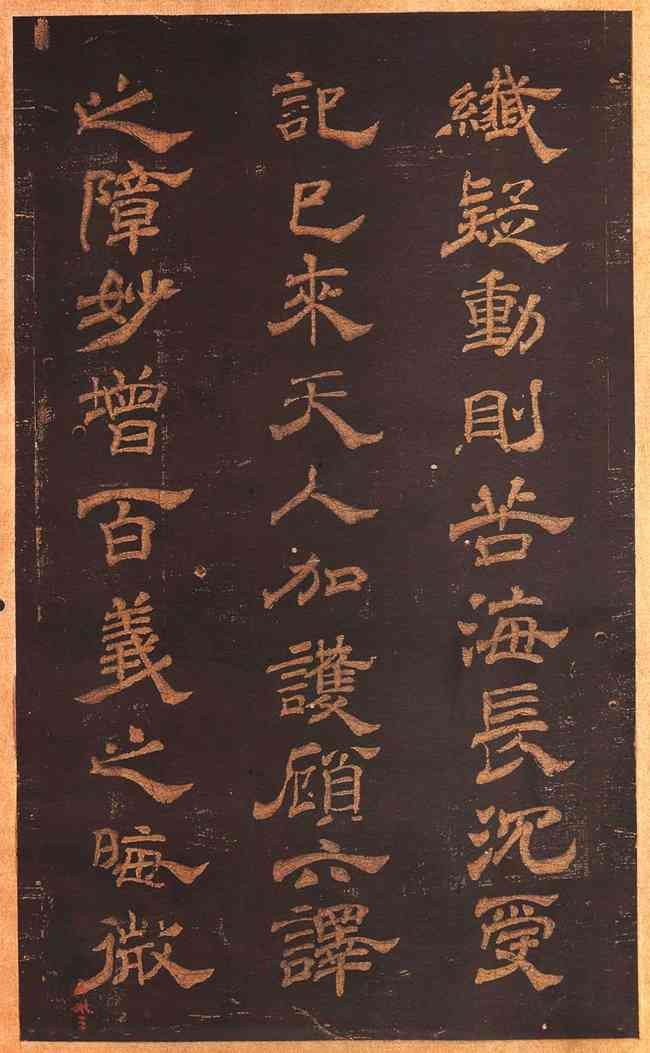 纖疑動則苦海長沉受
記已來天人加護顧六譯
之障妙增百義之晦微